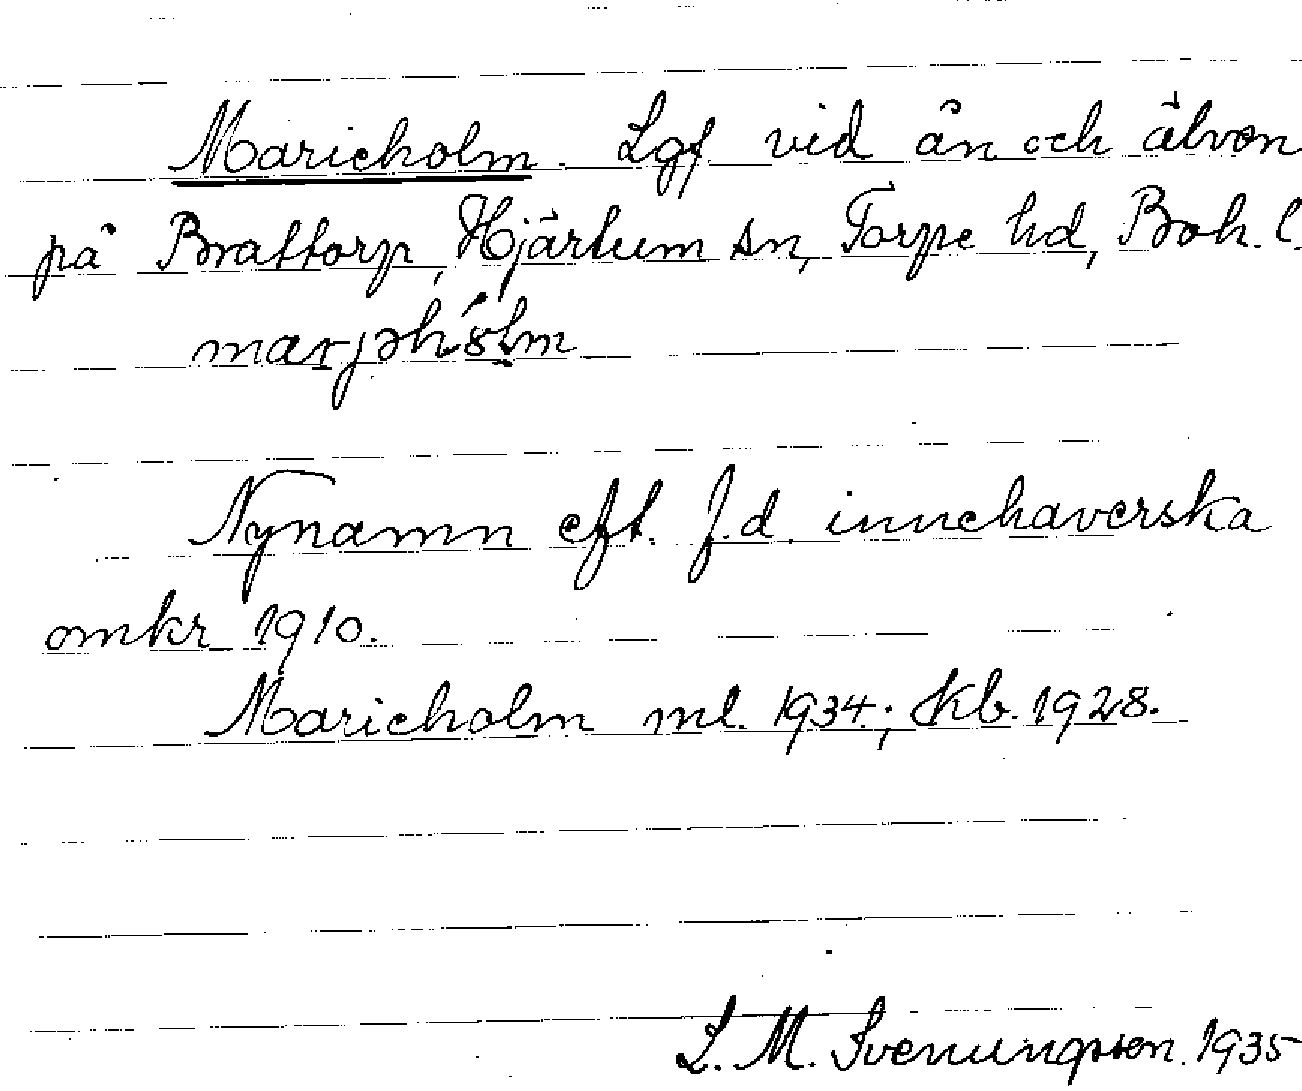 Marieholm. Lgf vid ån och älven
på Brattorp, Hjärtum sn, Torpe hd, Boh. l.
marjəhòlm
Nynamn eft. f.d. innehaverska
omkr 1910.
Marieholm ml. 1934; Kb. 1928.
S. M. Svenungsson. 1935